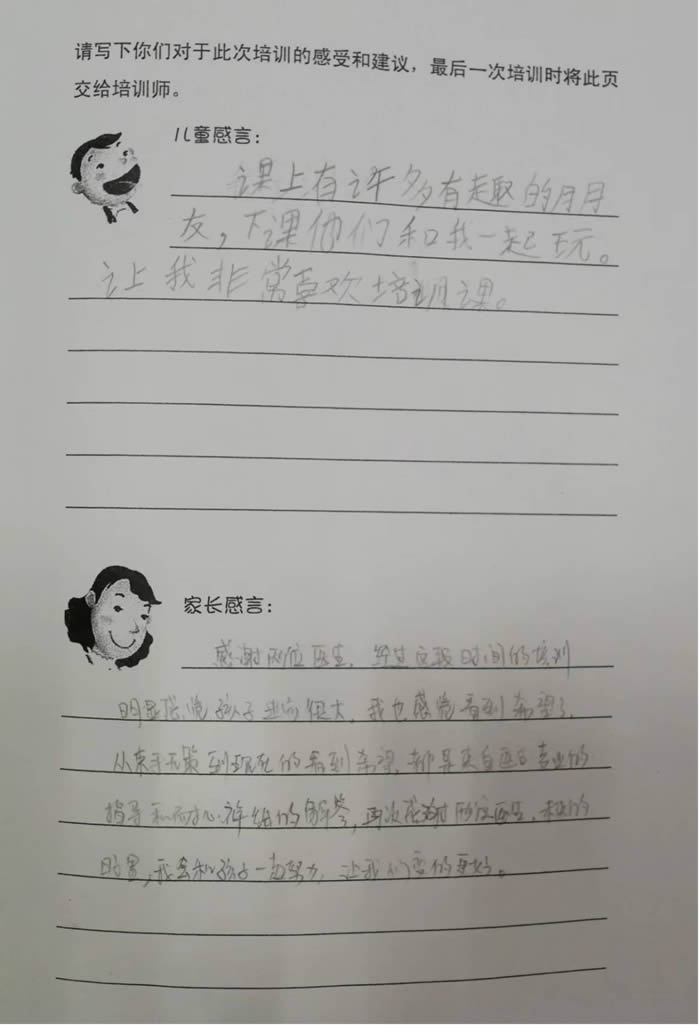 请写下你们对于此次培训的感受和建议，最后一次培训时将此页
交给培训师。
儿童感言：
课上有许多有趣的朋
友，下课他们和我一起玩。
让我非常喜欢培训课。
家长感言：
感谢两位医生，经过这段时间的培训
明显感觉孩子进步很大，我也感觉看到希望了，
从束手无策到现在的看到希望，都是来自医生专业的
指导和耐心详细的解答，再次感谢两位医生，未来的
时量，我会和孩子一起努力，让我们变的更好。